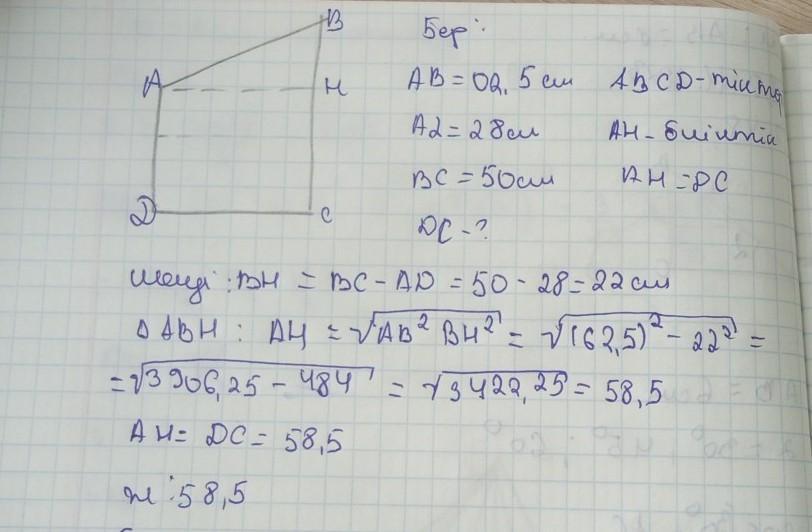 B
Бер:
A
H
AB = 62,5 см ABCD-тікт
AД = 28см AH-биіктік
BC = 50см AH = DC
D
C
DC - ?
Шешуі: BH = BC - AD = 50 - 28 = 22 см
Δ ABH: AH = √AB² BH² = √(62,5)² - 22² =
= √3906,25 - 484 = √3422,25 = 58,5
AH = DC = 58,5
ж: 58,5